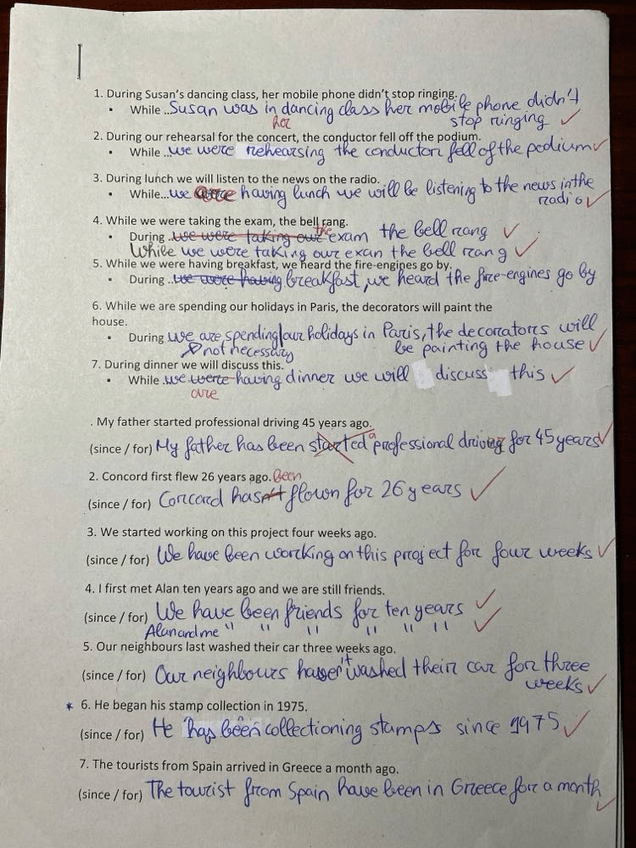 1. During Susan's dancing class, her mobile phone didn't stop ringing.
• While ..Susan was in dancing class her mobile phone didn't
her stop ringing
2. During our rehearsal for the concert, the conductor fell off the podium.
• While ..we were rehearsing the conductor fell of the podium
3. During lunch we will listen to the news on the radio.
• While...we are having lunch we will be listening to the news in the
radio
4. While we were taking the exam, the bell rang.
• During ..we were taking our the exam the bell rang
While we were taking our exan the bell rang
5. While we were having breakfast, we heard the fire-engines go by.
• During ..we were having breakfast, we heard the fire-engines go by
6. While we are spending our holidays in Paris, the decorators will paint the
house.
• During we are spending our holidays in Paris, the decorators will
not necessary be painting the house
7. During dinner we will discuss this.
• While ..we were having dinner we will discuss this
are
. My father started professional driving 45 years ago.
(since / for) My father has been started a professional driving for 45 years
2. Concord first flew 26 years ago. been
(since / for) Concord hasn't flown for 26 years
3. We started working on this project four weeks ago.
(since / for) We have been working on this project for four weeks
4. I first met Alan ten years ago and we are still friends.
(since / for) We have been friends for ten years
Alan and me " " " " " "
5. Our neighbours last washed their car three weeks ago.
(since / for) Our neighbours haven't washed their car for three
weeks
* 6. He began his stamp collection in 1975.
(since / for) He has been collectioning stamps since 1975
7. The tourists from Spain arrived in Greece a month ago.
(since / for) The tourist from Spain have been in Greece for a month